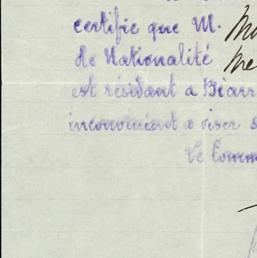 certifie que M.
de Nationalité Me
est résidant à Biarr
inconvénient a viser s
Le Comm